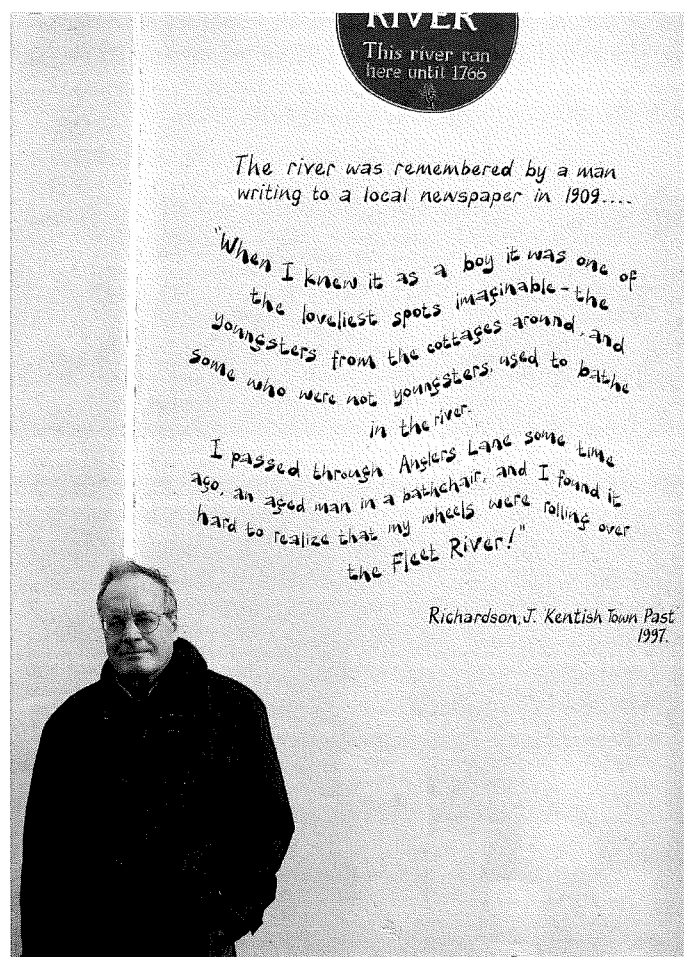 RIVER
This river ran
here until 1766
The river was remembered by a man
writing to a local newspaper in 1909....
"When I knew it as a boy it was one of
the loveliest spots imaginable - the
youngsters from the cottages around, and
some who were not youngsters, used to bathe
in the river.
I passed through Anglers Lane some time
ago, an aged man in a bathchair, and I found it
hard to realize that my wheels were rolling over
the Fleet River!"
Richardson, J. Kentish Town Past
1997.